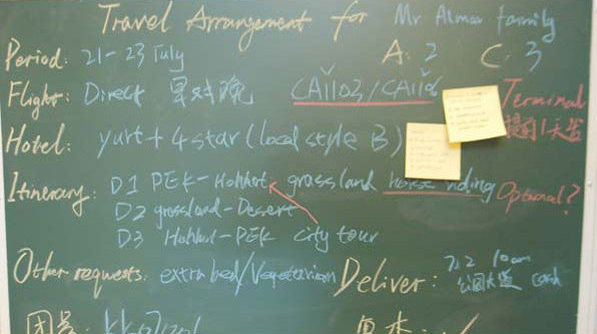 Travel Arrangement for Mr Almar family
Period: 21-23 July A: 2 C: 3
Flight: Direct 早对晚 CA1103/CA1106 Terminal
提前1天签
Hotel: yurt + 4 star (local style B)
Itinerary: D1 PEK-Hohhot grassland horse riding Optional?
D2 grassland-Desert
D3 Hohhot-PEK city tour
Other requests: extra bed/Vegetarian Deliver: 7.2 10am
cash
团号: